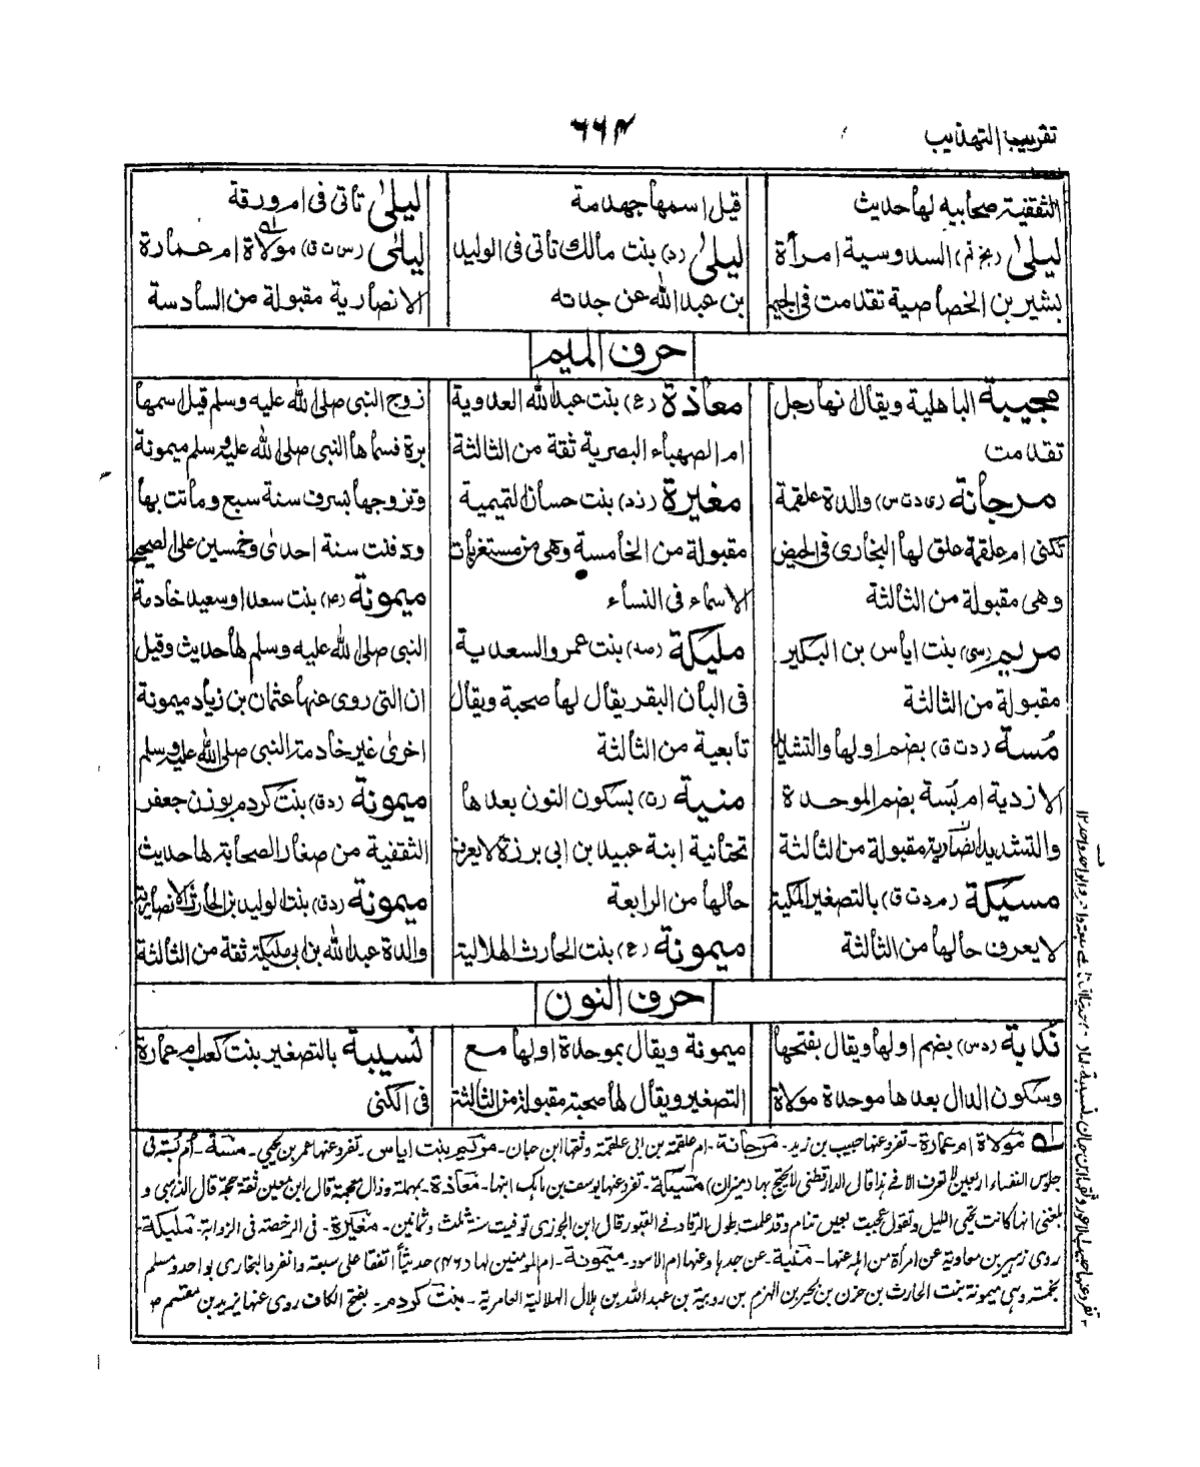 تقريب التهذيب
٦٦٤
الثقفية صحابيه لها حديث
ليلىٰ (بخ تم) السدوسية امرأة
بشير بن الخصاصية تقدمت فى الجيم
قيل اسمها جهدمة
ليلىٰ (د) بنت مالك تأتى فى الوليد
بن عبد الله عن جدته
ليلىٰ تأتى فى ام ورقة
ليلىٰ (س ت ق) مولاة ام عمارة
الانصارية مقبولة من السادسة
حرف الميم
مجيبة الباهلية ويقال انها رجل
تقدمت
مرجانة (ى د ت س) والدة علقمة
تكنى ام علقمة علق لها البخارى فى الحيض
وهى مقبولة من الثالثة
مريم (سى) بنت اياس بن البكير
مقبولة من الثالثة
مُسة (د ت ق) بضم اولها والتشديد
الازدية ام بُسة بضم الموحدة
والتشديد ايضا مقبولة من الثالثة
مسيكة (م د ت ق) بالتصغير المكية
لا يعرف حالها من الثالثة
معاذة (ع) بنت عبد الله العدوية
ام الصهباء البصرية ثقة من الثالثة
مغيرة (د) بنت حسان التميمية
مقبولة من الخامسة وهى من مستغربات
الاسماء فى النساء
مليكة (مد) بنت عمرو السعدية
فى البان البقر يقال لها صحبة ويقال
تابعية من الثالثة
منية (ت) بسكون النون بعدها
تحتانية ابنة عبيد بن ابى برزة لا يعرف
حالها من الرابعة
ميمونة (ع) بنت الحارث الهلالية
زوج النبى صلى الله عليه وسلم قيل اسمها
برة فسماها النبى صلى الله عليه وسلم ميمونة
وتزوجها بسرف سنة سبع وماتت بها
ودفنت سنة احدىٰ وخمسين على الصحيح
ميمونة (٤) بنت سعد او سعيد خادمة
النبى صلى الله عليه وسلم لها حديث وقيل
ان التى روى عنها عثمان بن زياد ميمونة
اخرىٰ غير خادمة النبى صلى الله عليه وسلم
ميمونة (د ق) بنت كردم بوزن جعفر
الثقفية من صغار الصحابة لها حديث
ميمونة (د ق) بنت الوليد بن الحارث الانصارية
والدة عبد الله بن ابى مليكة ثقة من الثالثة
حرف النون
ندبة (د س) بضم اولها ويقال بفتحها
وسكون الدال بعدها موحدة مولاة
ميمونة ويقال بموحدة اولها مع
التصغير ويقال لها صحبة مقبولة من الثالثة
نسيبة بالتصغير بنت كعب ام عمارة
فى الكنى
مولاة ام عمارة۔ تفرد عنها حبيب بن زيد۔ مرجانة۔ ام علقمة بن ابى علقمة وثقها ابن حبان۔ مريم بنت اياس۔ تفرد عنها عمر بن يحيى۔ مسة۔ ام بسة فى
جلوس النفساء اربعين لا تعرف الا فى هذا قال الدارقطنى لا يحتج بها (ميزان) مسيكة۔ تفرد عنها يوسف بن ماهك ابنها۔ معاذة۔ بمهملة وذال معجمة قال ابن معين ثقة حجة قال الذهبى و
بلغنى انها كانت تحيى الليل وتقول عجبت لعين تنام وقد علمت طول الرقاد فى القبور قال ابن الجوزى توفيت سنة ثلث وثمانين۔ مغيرة۔ فى الرخصة فى الزوابة۔ مليكة۔
روى زهير بن معاوية عن امرأة من اهله عنها۔ منية۔ عن جدها وعنها ام الاسود۔ ميمونة۔ ام المومنين لها (٤٦) حديثاً اتفقا على سبعة وانفرد البخارى بواحد ومسلم
بخمسة وهى ميمونة بنت الحارث بن حزن بن بجير بن الهزم بن روبية بن عبد الله بن هلال الهلالية العامرية۔ بنت كردم۔ بفتح الكاف روى عنها يزيد بن مقسم